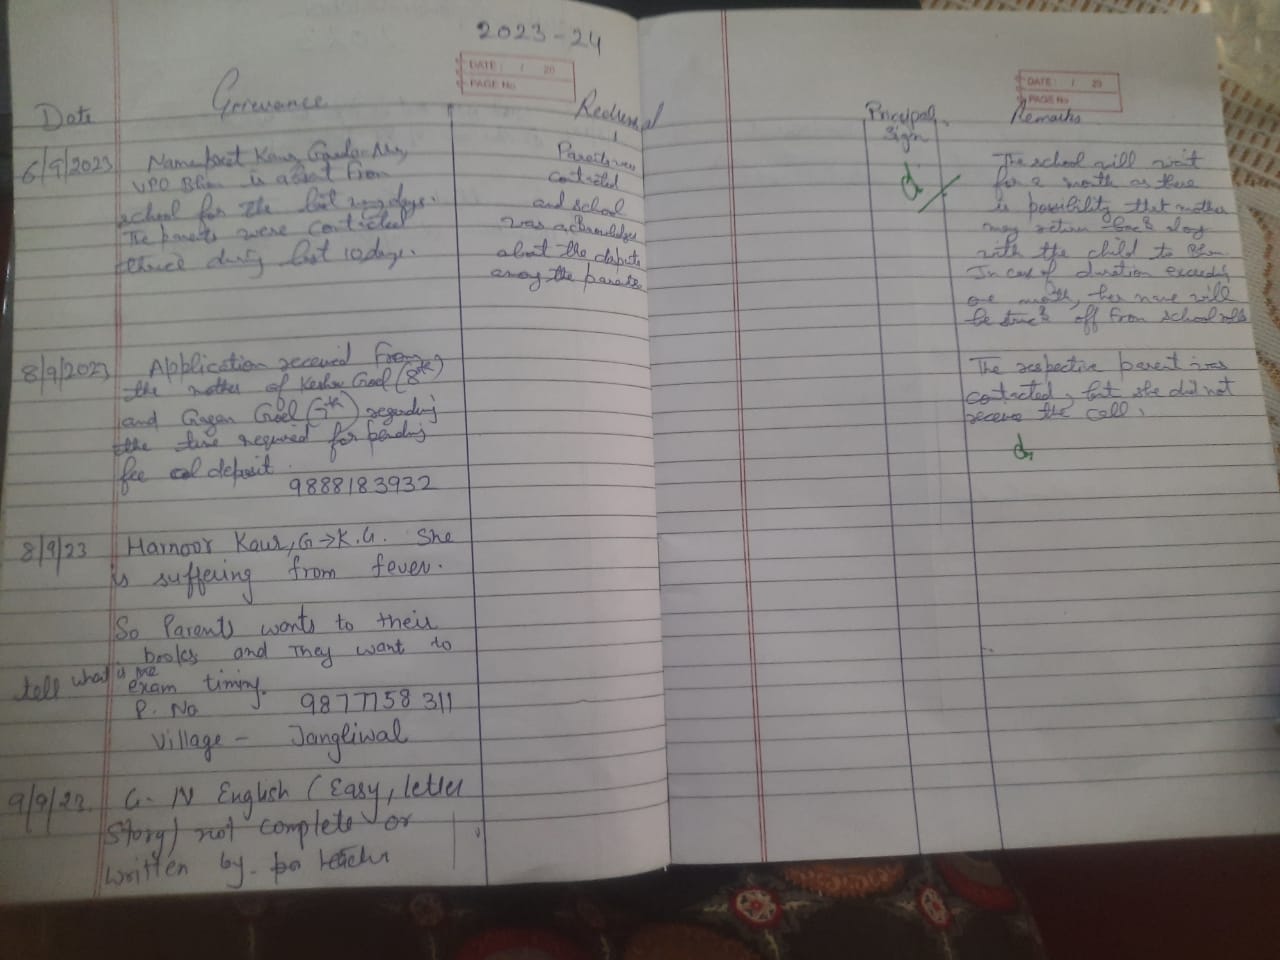 2023-24
DATE: / 20
PAGE No
DATE: / 20
PAGE No
Date
Grievance
Redressal
Principal
Sign
Remarks
6/9/2023
Kaur
VPO is absent from
school for the last days.
The parents were contacted
thrice during last 10 days.
Parents were
contacted
and school
was acknowledged
about the dispute
among the parents
The school will wait
for a month as there
is possibility that mother
may return back
with the child to
In case of duration exceeding
one month, her name will
be struck off from school rolls
8/9/2023
Application received from
the mother of Goel (8th)
and Gagan Goel (7th) regarding
the time required for pending
fee deposit.
9888183932
The respective parent was
contacted, but she did not
receive the call.
8/9/23
Harnoor Kaur, G→K.G. She
is suffering from fever.
So Parents wants to their
books and They want to
tell what is the
exam timing.
P. No 9877758311
Village - Jangliwal
9/9/23.
G. N English (Easy, letter
Story) not complete or
written by teacher